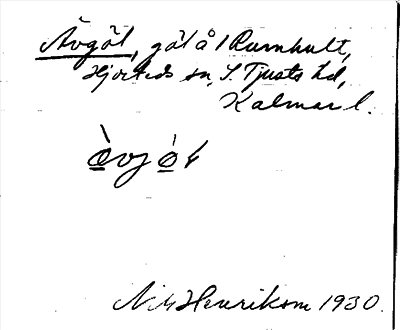 Ävgöl, göl å 1 Rumhult,
Hjorteds sn, S. Tjusts hd,
Kalmar l.
N. M. Henrikson 1930.